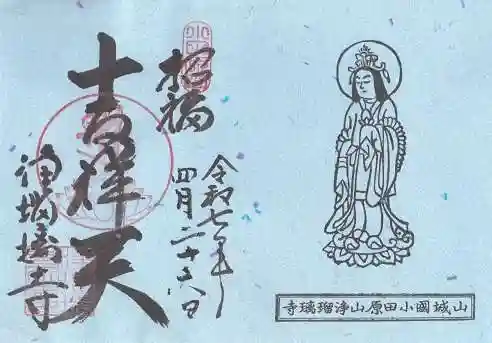 山城國小田原山浄瑠璃寺
令和七年
四月二十六日
招福
吉祥天
浄瑠璃寺